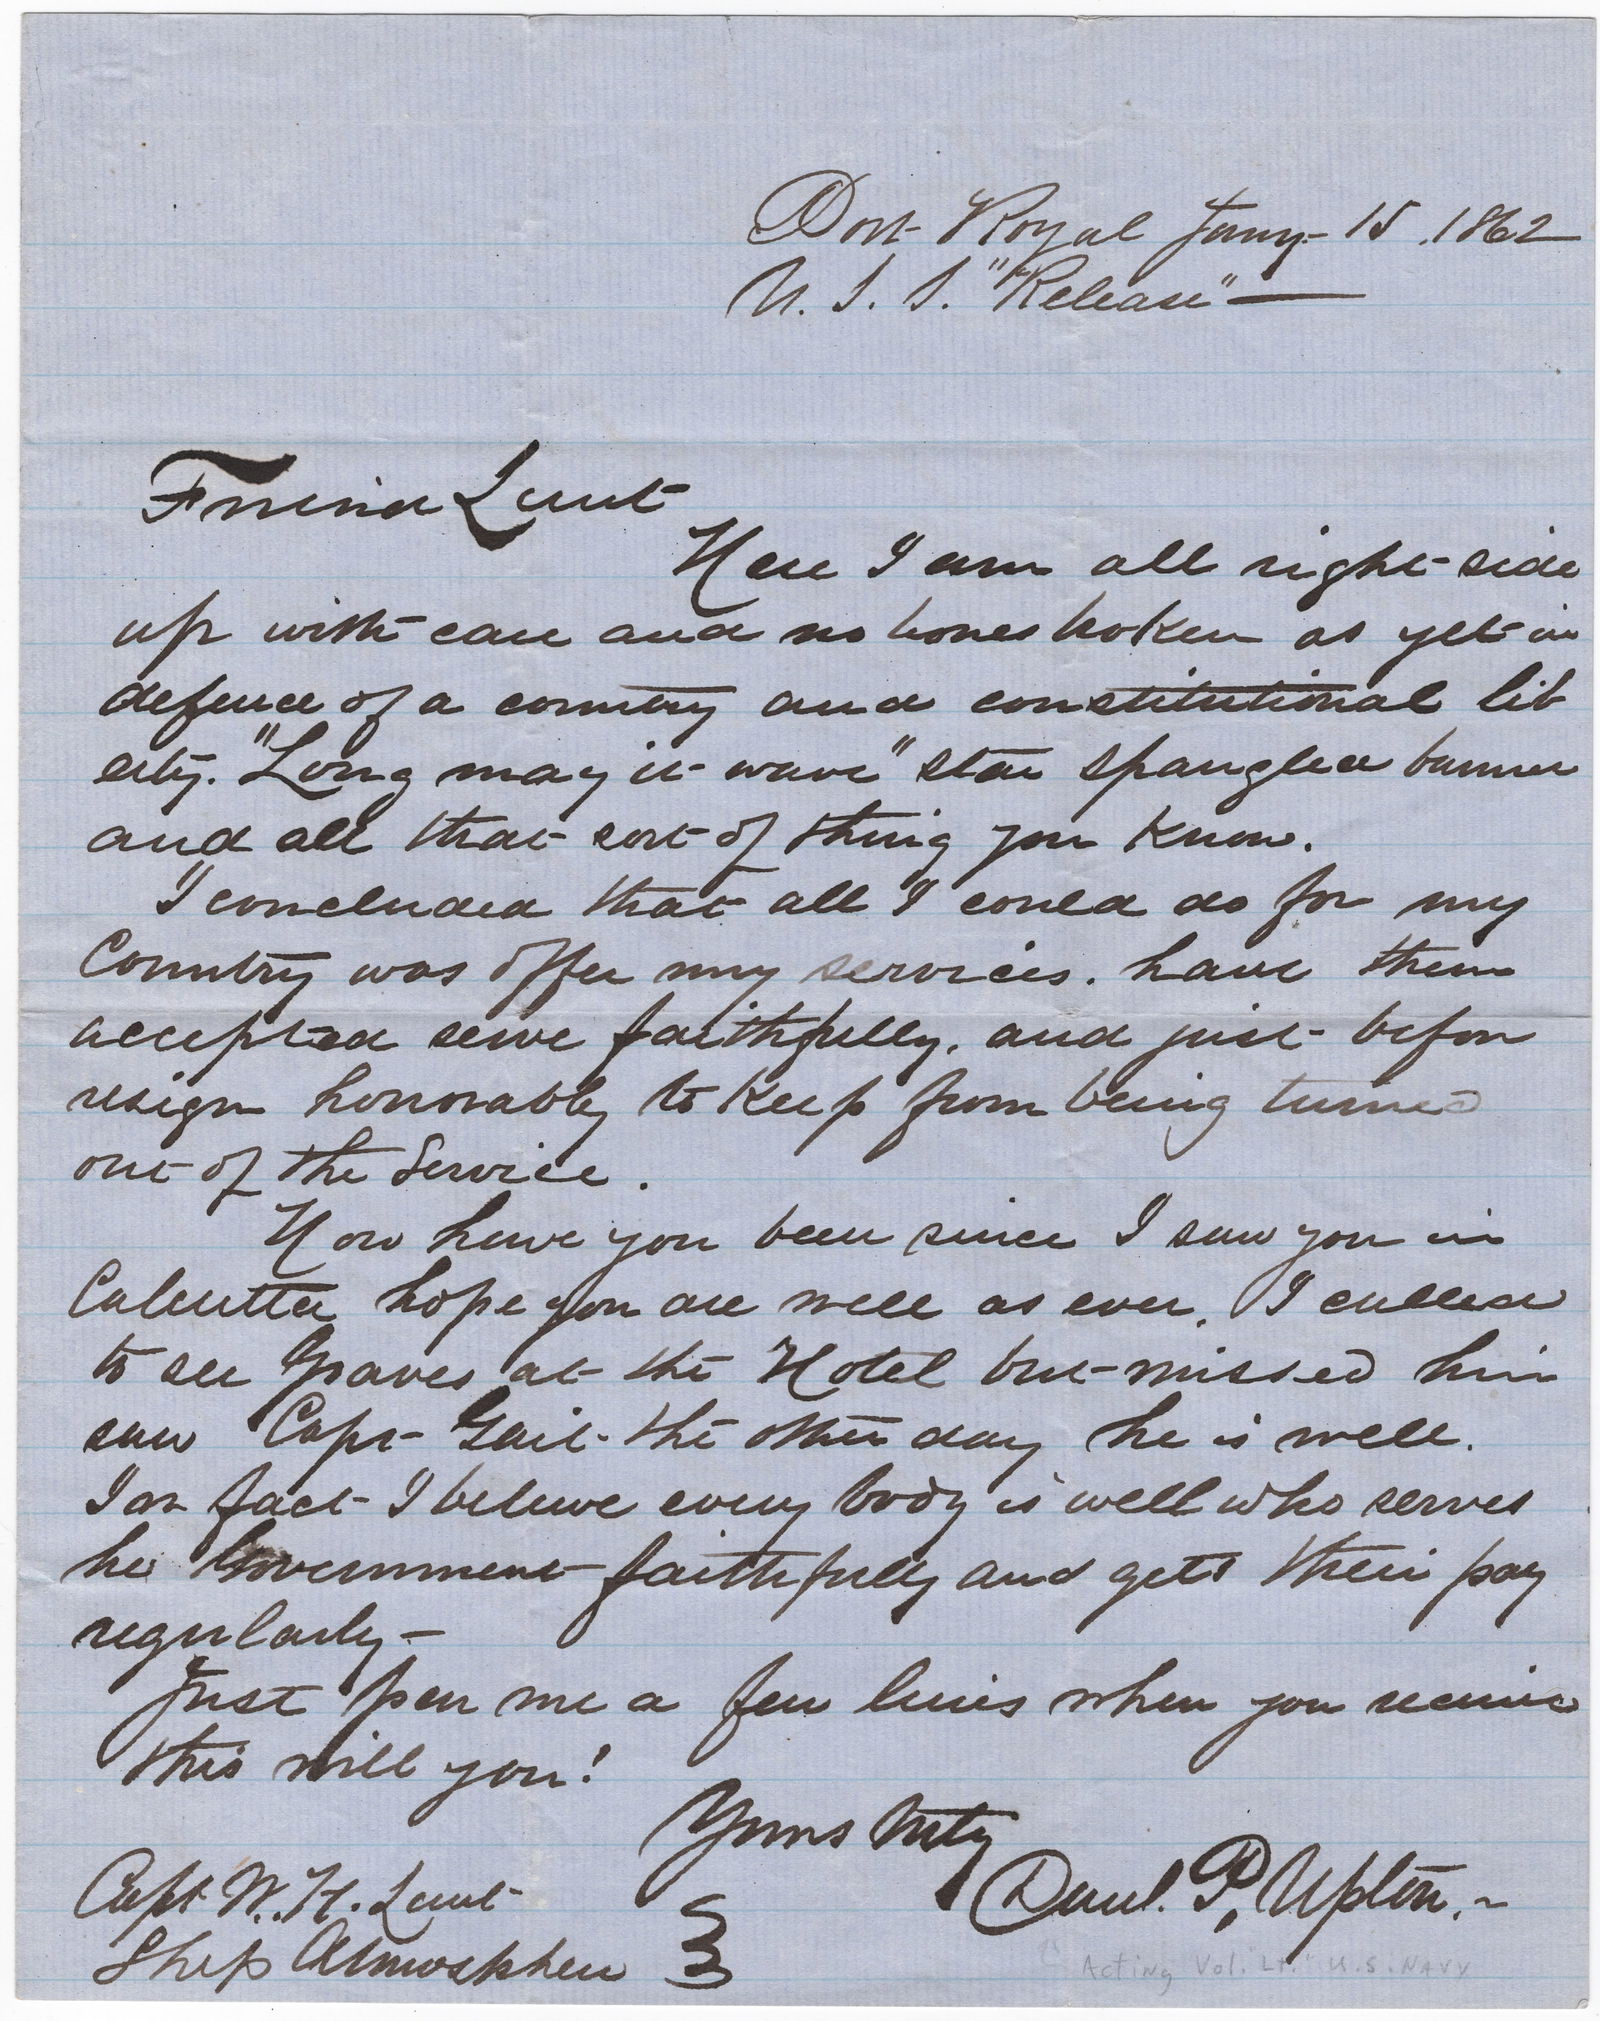 Port Royal Jany 15. 1862
U. S. S. "Release" —
Friend Lunt
Here I am all right side
up with care and no bones broken as yet in
defence of a country and constitutional lib
erty. "Long may it wave" star spangled banner
and all that sort of thing you know.
I concluded that all I could do for my
Country was offer my services. have them
accepted serve faithfully, and just before
resign honorably to keep from being turned
out of the Service.
How have you been since I saw you in
Calcutta hope you are well as ever. I called
to see Graves at the Hotel but missed him
saw Capt Gait the other day he is well.
In fact I believe every body is well who serves
he Government faithfully and gets their pay
regularly —
Just pen me a few lines when you receive
this will you!
Yours truly
Danl. P. Upton. ~
Capt W. H. Lunt
Ship Atmosphere
Acting Vol. Lt. U.S. NAVY